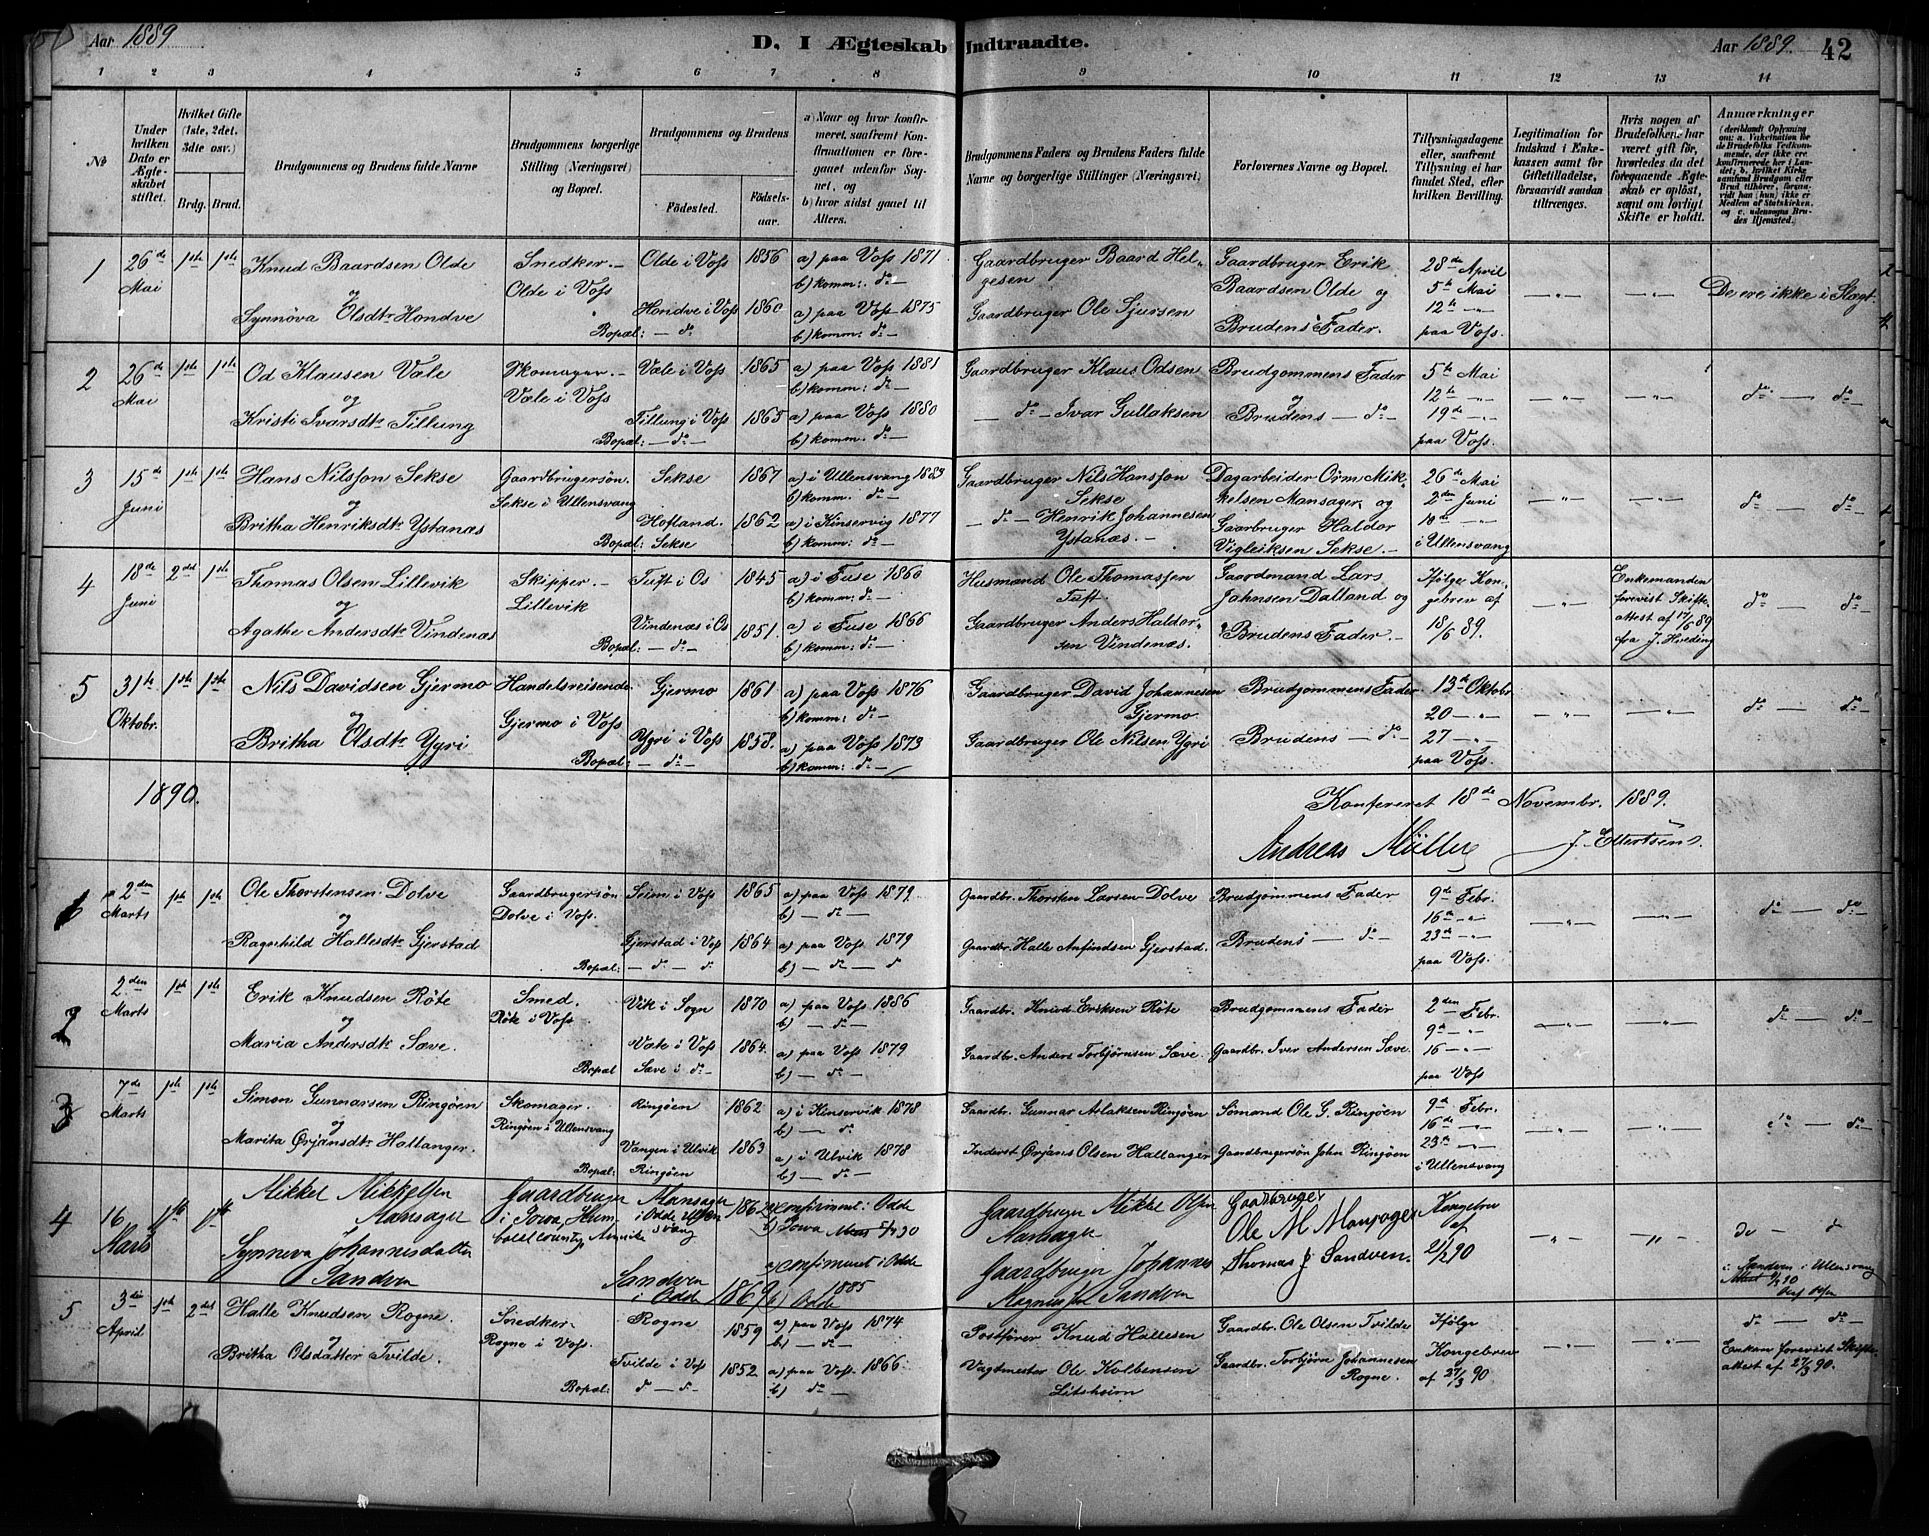 Aar 1889
D. I Ægteskab Indtraadte.
Aar 1889. 42
1 2 3 4 5 6 7 8 9 10 11 12 13 14
No
Under hvilken Dato er Ægteskabet stiftet.
Hvilket Gifte (1ste, 2det, 3dte osv.)
Brdg. Brud.
Brudgommens og Brudens fulde Navne
Brudgommens borgerlige Stilling (Næringsvei) og Bopæl.
Brudgommens og Brudens
Födested.
Födselsaar.
a) Naar og hvor konfirmeret, saafremt Konfirmationen er foregaaet udenfor Sognet, og
b) hvor sidst gaaet til Alters.
Brudgommens Faders og Brudens Faders fulde Navne og borgerlige Stillinger (Næringsvei)
Forlovernes Navne og Bopæl.
Tillysningsdagene eller, saafremt Tillysning ei har fundet Sted, efter hvilken Bevilling.
Legitimation for Indskud i Enkekassen samt for Giftetilladelse, forsaavidt saadan tiltrænges.
Hvis nogen af Brudefolkene har været gift för, hvorledes da det foregaaende Ægteskab er oplöst, samt om lovligt Skifte er holdt.
Anmærkninger
(deriblandt Oplysning om: a. Vakcination for de Brudefolks Vedkommende, der ikke ere konfirmerede her i Landet; b. hvilket Kirkesamfund Brudgom eller Brud tilhörer, forsaavidt han (hun) ikke er Medlem af Statskirken, og c. udensogns Brudes Hjemsted.)
1 26de Mai 1ste 1ste
Knud Baardsen Olde
og
Synnöva Olsdtr Hondve
Snedker.-
Olde i Voss
Bopæl: - do -
Olde i Voss 1856
Hondve i Voss 1860
a) paa Voss 1871
b) komm: do -
a) paa Voss 1875
b) komm: do -
Gaardbruger Baard Helgesen
Gaardbruger Ole Sjursen
Gaardbruger Erik
Baardsen Olde og
Brudens Fader.
28de April
5te Mai
12te -"-
paa Voss.
-"- -"-
De ere ikke i Slægt
2 26de Mai 1ste 1ste
Od Klausen Væle
og
Kristi Ivarsdtr Tillung
Skomager.-
Væle i Voss
Bopæl: - do -
Væle i Voss 1865
Tillung i Voss 1865
a) paa Voss 1881
b) komm: do -
a) paa Voss 1880
b) komm. do -
Gaardbruger Klaus Odsen
- do - Ivar Gullaksen
Brudgommens Fader
og
Brudens - do -
5te Mai
12te -"-
19de -"-
paa Voss.
do - do -
3 15de Juni 1ste 1ste
Hans Nilsson Sekse
og
Britha Henriksdtr Ystanæs
Gaardbrugersön.
Sekse i Ullensvang
Bopæl: Sekse
Sekse 1867
Hofland. 1862
a) i Ullensvang 1883
b) komm: do -
a) i Kinservig 1877
b) komm: do -
Gaardbruger Nils Hansson
Sekse
- do - Henrik Johannesen
Ystanæs. -
Dagarbeider Orm Mikkelsen Mansager og
Gaarbruger Haldor
Vigleiksen Sekse. -
26de Mai
2den Juni
10de -"-
i Ullensvang
-"- -"-
do - do -
4 18de Juni 2det 1ste
Thomas Olsen Lillevik
og
Agathe Andersdtr Vindenæs
Skipper. -
Lillevik
Bopæl: - do -
Tuft i Os 1845
Vindenæs i Os 1851.
a) i Fuse 1860
b) komm: do -
a) i Fuse 1866
b) komm: do -
Husmand Ole Thomassen
Tuft.
Gaardbruger Anders Haldorsen Vindenæs.
Gaardmand Lars
Jahnsen Dalland og
Brudens Fader. -
Ifölge Kongebrev af
18/6 89.
-"-
Enkemanden
forevist Skifteattest af 17/6 89
fra J. Hveding
do - do -
5 31te Oktobr. 1ste 1ste
Nils Davidsen Gjermo
og
Britha Olsdtr Ygri
Handelsreisende
Gjermo i Voss
Bopæl: - do -
Gjermo 1861
Ygri i Voss 1858.
a) paa Voss 1876
b) komm: do -
a) paa Voss 1873
b) komm: do -
Gaardbruger David Johannesen
Gjermo.
Gaardbruger Ole Nilsen Ygri
Brudgommens Fader
Brudens - do -
13de Oktobr
20 -"-
27 -"-
paa Voss.
-"- -"-
do - do -
1890.
Konfereret 18de Novembr. 1889.
Andreas Müller J. Ellertsen.
1 2den Marts 1ste 1ste
Ole Thorstensen Dolve
og
Ragnhild Hallesdtr Gjerstad
Gaardbrugersön
Dolve i Voss.
Bopæl: - do - do
Seim i Voss 1865
Gjerstad i Voss 1864
a) paa Voss 1879
b) - do -
a) paa Voss. 1879
b) - do - d
Gaardbr. Thorsten Larsen Dolve
Gaardbr. Halle Anfindsen Gjerstad.
Brudgommens Fader
Brudens - do -
9de Febr.
16de -"-
23de -"-
paa Voss.
-"- -"-
do - do -
2 2den Marts 1ste 1ste
Erik Knudsen Röte
og
Maria Andersdtr Sæve.
Smed.
Röte i Voss
Bopæl Sæve i do -
Vik i Sogn 1870
Væte i Voss 1864.
a) paa Voss 1886
b) - do -
a) paa Voss 1879
b) - do -
Gaardbr. Knud Eriksen Röte
Gaardbr. Anders Torbjörnsen Sæve.
Brudgommens Fader
Gaardbr. Iver Andersen Sæve.
2den Febr.
9de -"-
16 -"-
paa Voss
-"- -"-
do - do -
3 7de Marts 1ste 1ste
Simon Gunnarsen Ringöen
og
Marita Örjansdtr Hallanger.
Skomager.
Ringöen i Ullensvang
Bopæl: Ringöen
Ringöen 1862
Vangen i Ulvik 1863
a) i Kinservik 1878
b) - do
a) i Ulvik 1878
b) - do -
Gaardbr. Gunnar Aslaksen Ringöen
Inderst Örjans Olsen Hallanger
Sömand Ole G. Ringöen
Gaardbrugersön John Ringöen
9de Febr.
16de -"-
23de -"-
i Ullensvang
-"- -"-
do - do -
4 16 Marts 1ste 1ste
Mikkel Mikkelsen
Mansager
Synneva Johannesdatter
Sandven
Gaardbruger
i Iowa, Humboldt County, Amerika
Mansager
i Odde Ullensvang
Sandven
i Odde 1869
a) confirmeret i Odde
b) Iowa
a) confirmeret i Odde
1885
b) Odde
Gaardbruger Mikkel Olsen
Mansager
Gaardbruger Johannes
Magnussen Sandven
Gaardbruger
Ole M Mansager
Thomas J Sandven.
Kongebrev
af
21/2 90
-"- "
do - d
i Sandven i Ullensvang
5 3die April 1ste 2det
Halle Knudsen Rogne.
og
Britha Olsdatter Tvilde.
Snedker
Rogne i Voss.
Bopæl: do - do -
Rogne 1859
Tvilde i Voss 1852
a) paa Voss 1874
b) - do -
a) paa Voss 1866.
b) do -
Postförer Knud Hallesen
Vagtmester Ole Kolbensen
Litsheim
Gaardbr. Ole Olsen Tvilde
Gaardbr. Torbjörn Johannesen
Rogne.
Ifölge
Kongebrev
af 27/3 90
-"- -"-
do - do -
Enken forevist Skifteattest af 27/3 90.